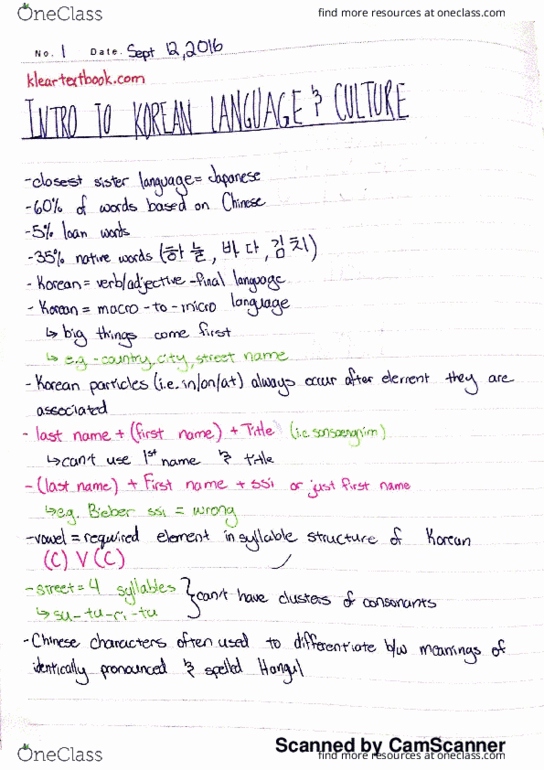 OneClass
find more resources at oneclass.com
No. 1 Date. Sept 12, 2016
kleartextbook.com
INTRO TO KOREAN LANGUAGE & CULTURE
-closest sister language = Japanese
-60% of words based on Chinese
-5% loan words
-35% native words (하늘, 바다, 김치)
-Korean = verb/adjective-final language
-Korean = macro-to-micro language
↳ big things come first
↳ e.g - country, city, street name
-Korean particles (i.e. in/on/at) always occur after element they are
associated
-last name + (first name) + Title (i.e. sonsaengnim)
↳ can't use 1st name & title
-(last name) + First name + ssi or just first name
↳ eg. Bieber ssi = wrong
-vowel = required element in syllable structure of Korean
(C) V (C)
-street = 4 syllables } can't have clusters of consonants
↳ su-tu-ri-tu
-Chinese characters often used to differentiate b/w meanings of
identically pronounced & spelled Hangul
Scanned by CamScanner
OneClass
find more resources at oneclass.com